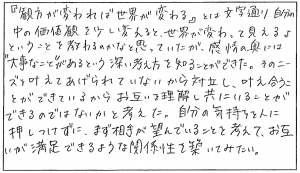 『観方が変われば世界が変わる』とは文字通り自分の
中の価値観を少し変えると、世界が変わって見えるよ
ということを教わるのかなと思っていたが、感情の奥には
大事なことがあるという深い考え方を知ることができた。そのニー
ズを叶えてあげられていないから対立し、叶え合うこ
とができているからお互いを理解し共にいることがで
できるのではないかと考えた。自分の気持ちを人に
押しつけずに、まず相手が望んでいることを考えて、お互
いが満足できるような関係性を築いてみたい。